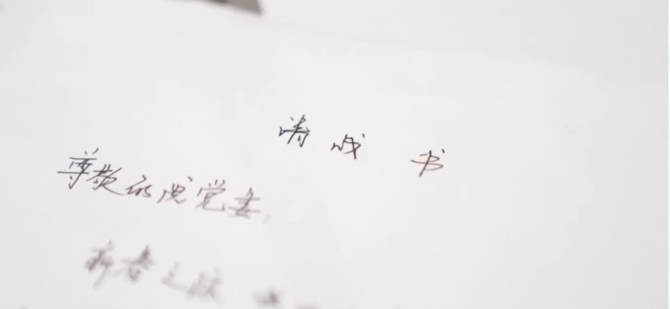 请战书
尊敬的院党委,
新春之际